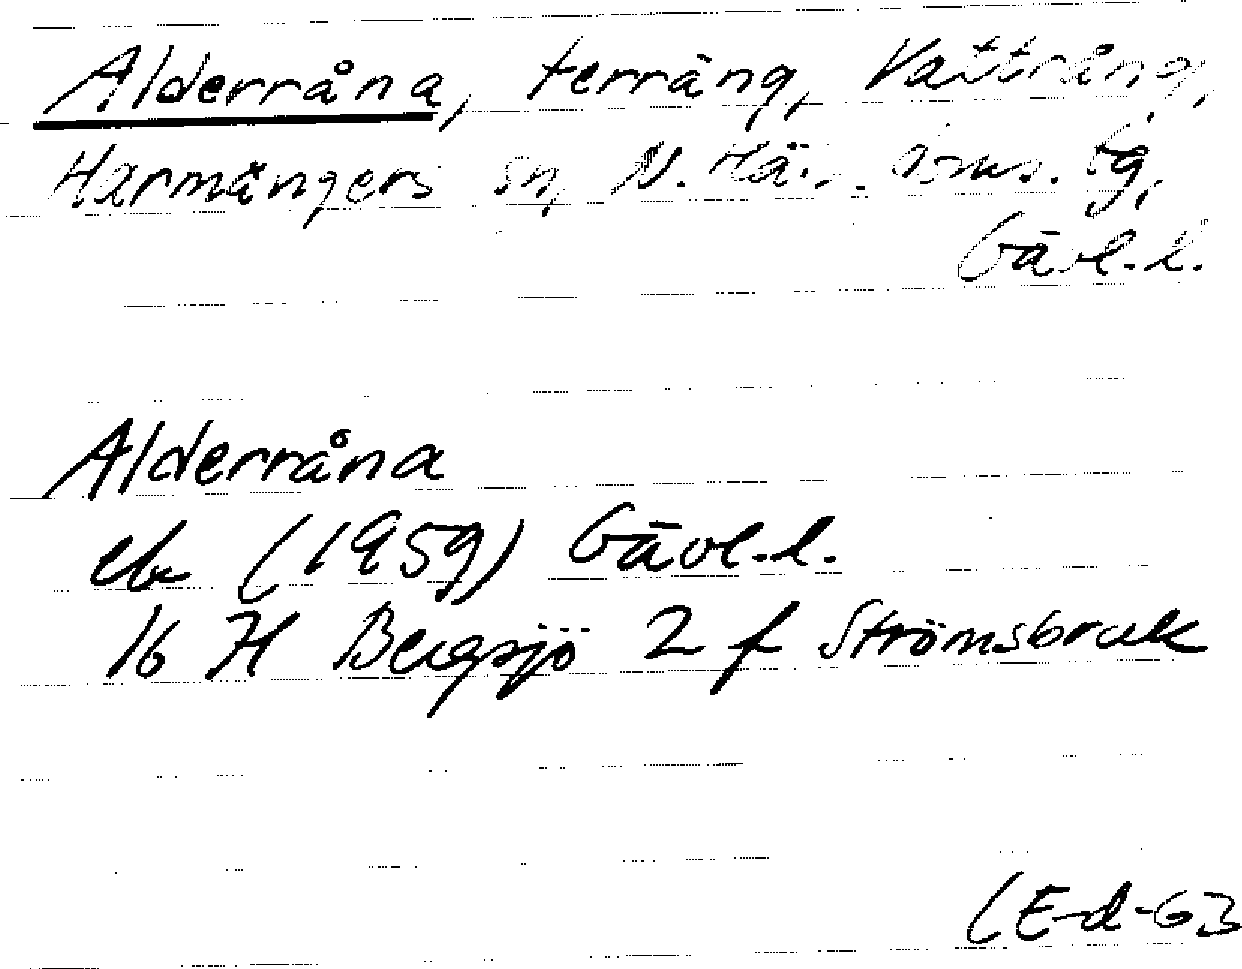 Alderråna, terräng, Vattrång,
Harmångers sn, N. Häls. dms. tg,
Gävl. l.
Alderråna
ek (1959) Gävl. l.
16 H Bergsjö 2 f Strömsbruk
(E-d-63